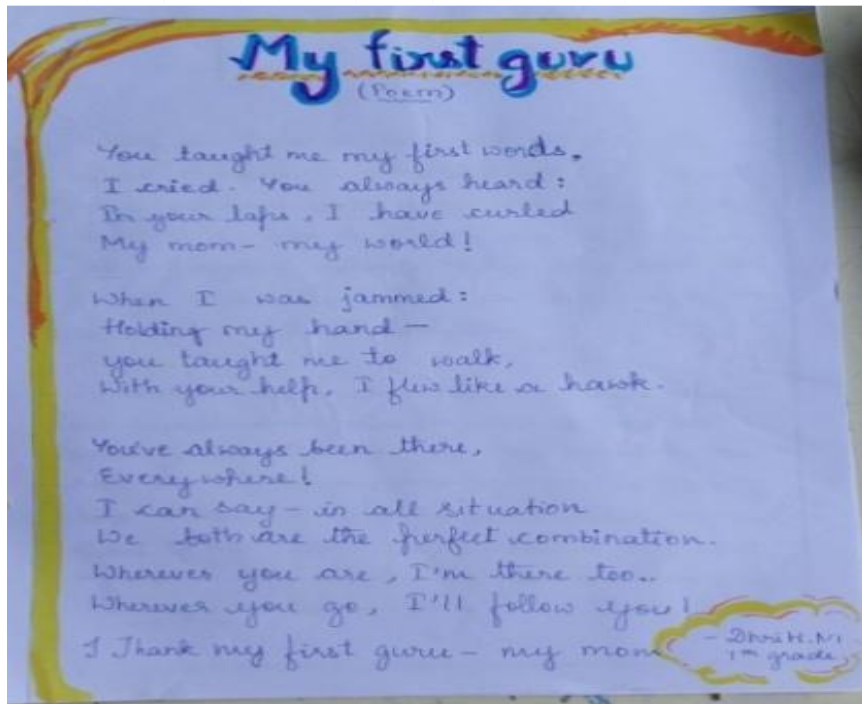 My first guru
(Poem)
You taught me my first words,
I cried. You always heard:
In your laps, I have curled
My mom- my world!
When I was jammed:
Holding my hand-
you taught me to walk,
With your help, I flew like a hawk.
You've always been there,
Everywhere!
I can say - in all situation
We both are the perfect combination.
Wherever you are, I'm there too..
Wherever you go, I'll follow you!
I Thank my first guru - my mom
grade